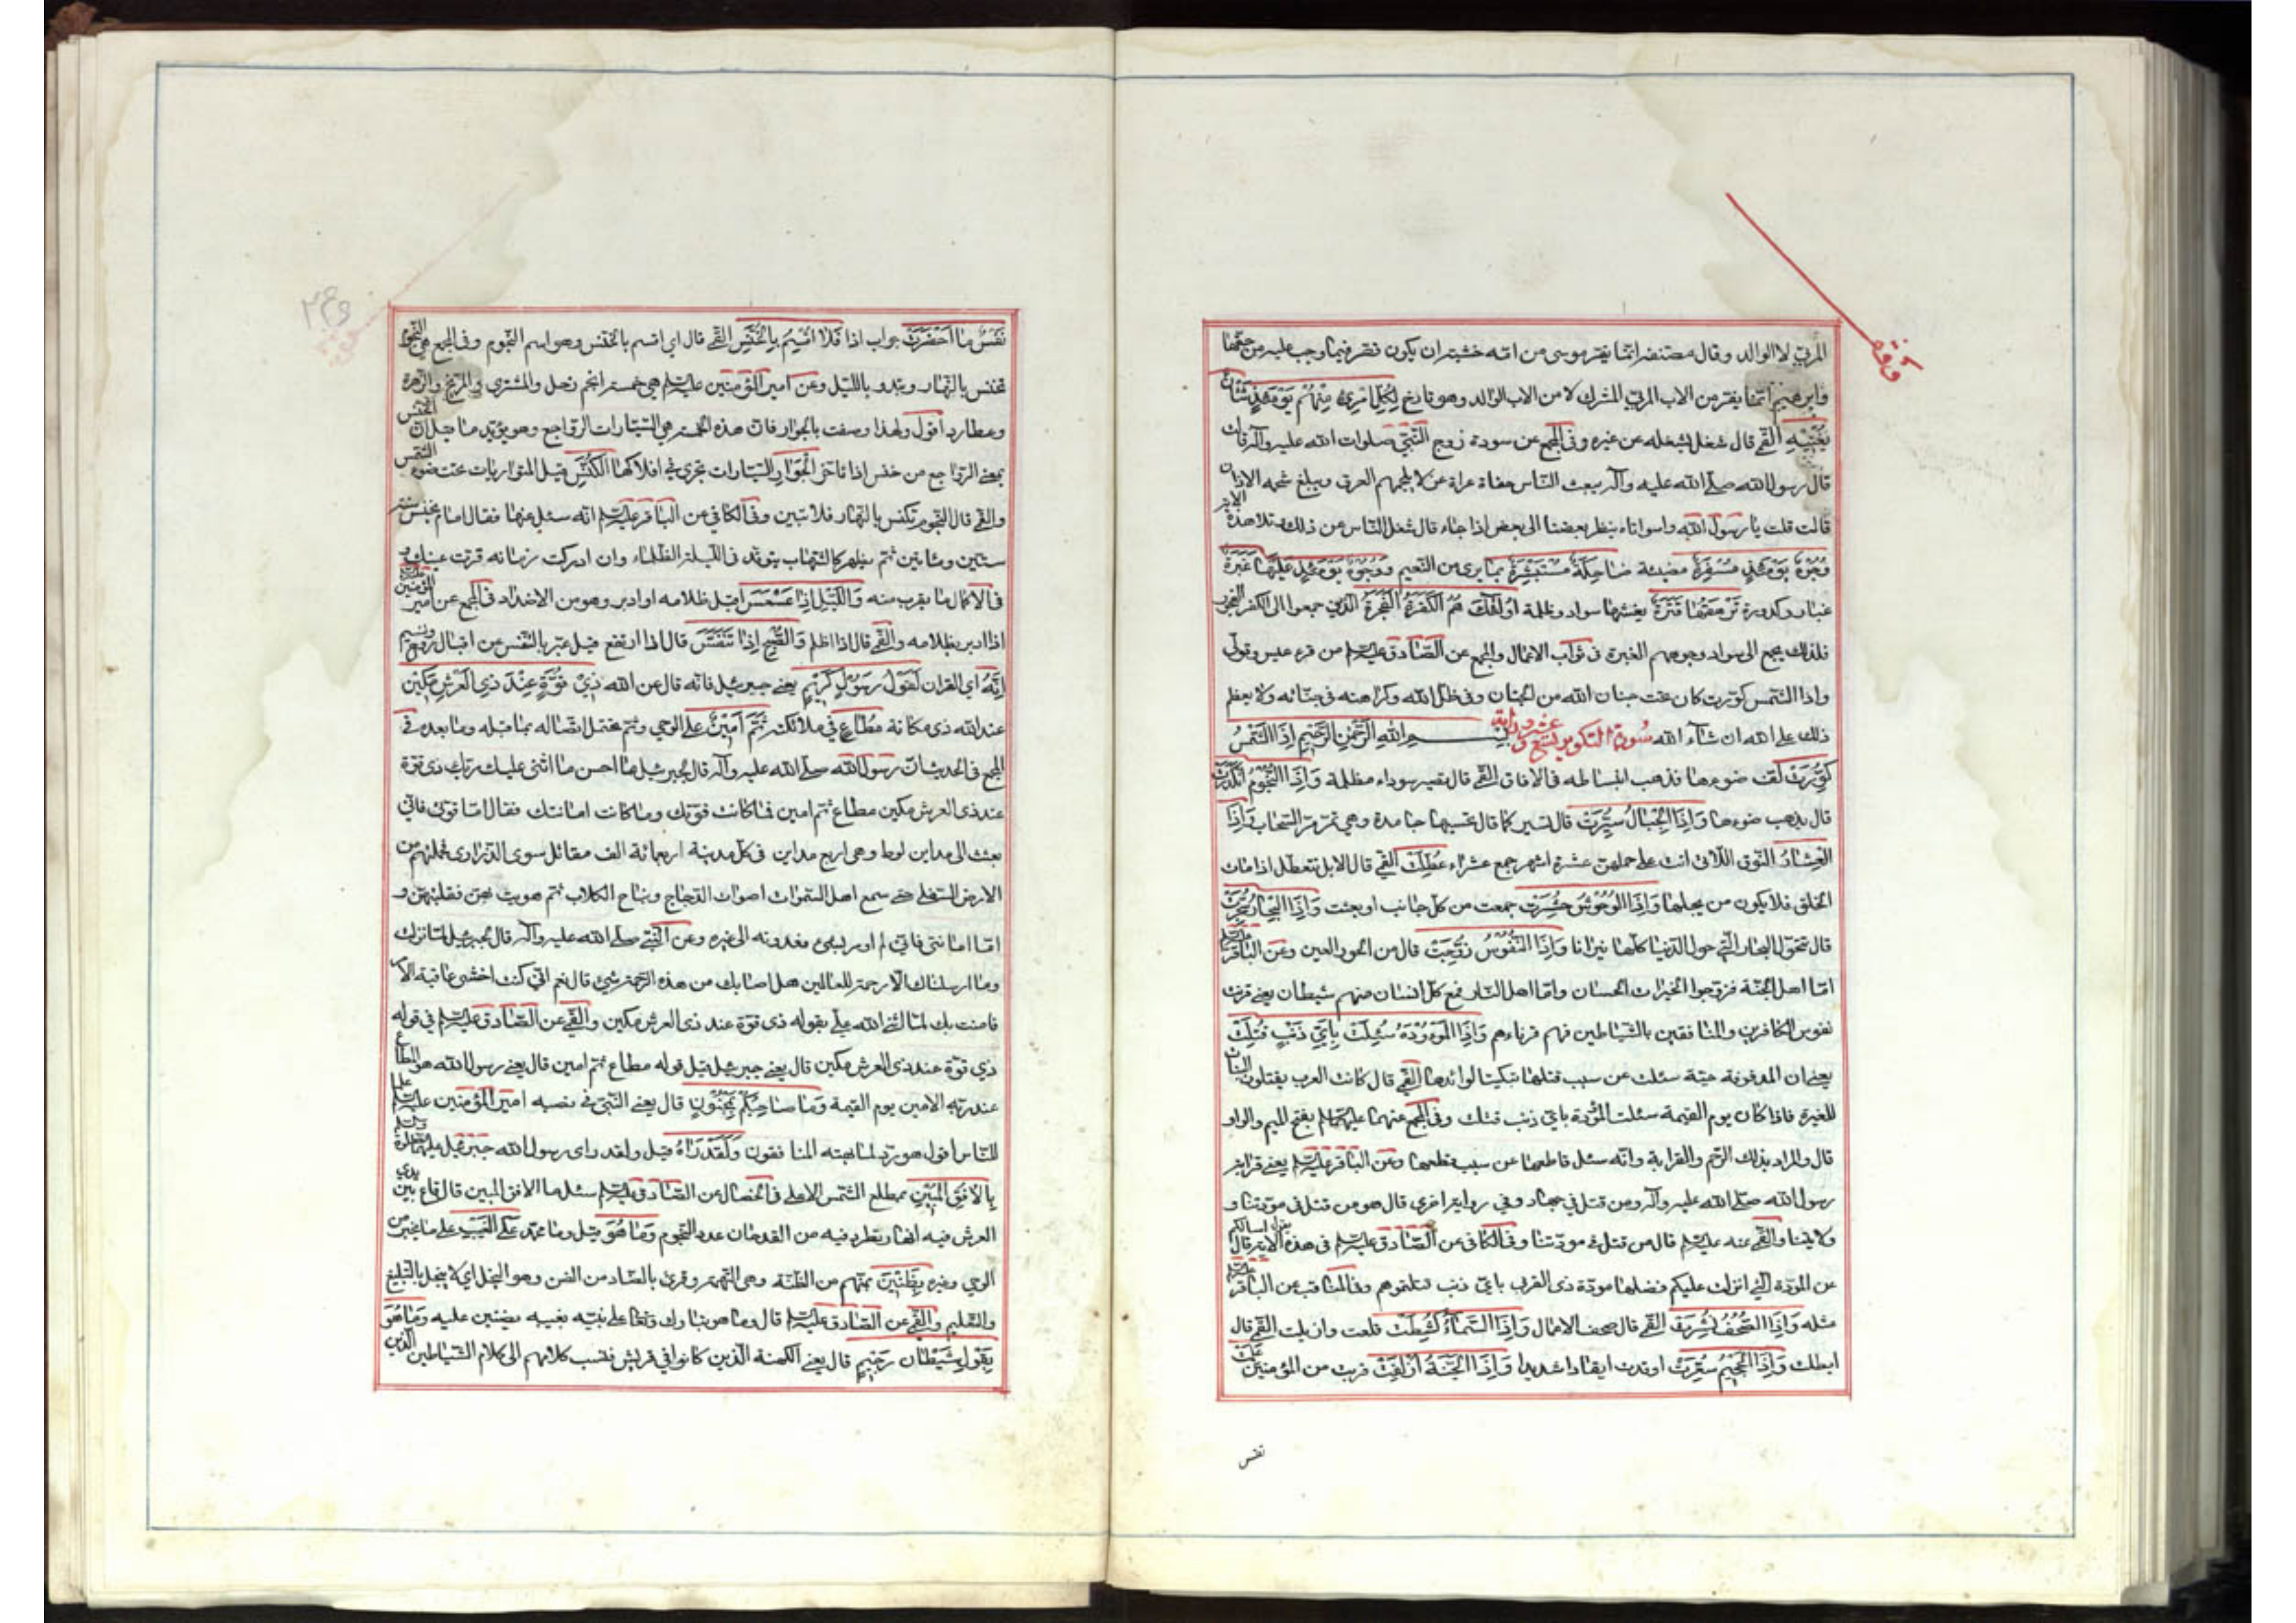 المربّي لا الوالد وقال مصنفه انما يفر موسى من امه خشية ان يكون قصر فيما وجب عليه من حقها
وابرهيم انما يفر من الاب المربي المشرك لا من الاب الوالد وهو تارخ لِكُلِّ امْرِئٍ مِنْهُمْ يَوْمَئِذٍ شَأْنٌ
يُغْنِيهِ القمّي قال شغل يشغله عن غيره وفي المجمع عن سودة زوج النبيّ صلوات الله عليه وآله قالت
قال رسول الله صلّى الله عليه وآله يبعث الناس حفاة عراة غرلا يلجمهم العرق ويبلغ شحمه الاذان
قالت قلت يا رسول الله واسوأتاه ينظر بعضنا الى بعض اذا جاء قال شغل الناس عن ذلك وتلا هذه الاية
وُجُوهٌ يَوْمَئِذٍ مُسْفِرَةٌ مضيئة ضَاحِكَةٌ مُسْتَبْشِرَةٌ بما يرى من النعيم وَوُجُوهٌ يَوْمَئِذٍ عَلَيْهَا غَبَرَةٌ
غبار وكدورة تَرْهَقُهَا قَتَرَةٌ يغشيها سواد وظلمة أُولَٰئِكَ هُمُ الْكَفَرَةُ الْفَجَرَةُ الذين جمعوا الى الكفر الفجور
فلذلك يجمع الى سواد وجوههم الغبرة في ثواب الاعمال والمجمع عن الصّادق عليه السلم من قرء عبس وتولّى
واذا الشمس كوّرت كان تحت جنان الله من الجنان وفي ظل الله وكرامته في جنانه ولا يعظم
ذلك على الله ان شاء الله سُورة التكوير تسع وعشرون اية بِسْمِ اللهِ الرَّحْمٰنِ الرَّحِيمِ إِذَا الشَّمْسُ
كُوِّرَتْ لفّت ضوءها فذهب انبساطه في الافاق القمّي قال تصير سوداء مظلمة وَإِذَا النُّجُومُ انْكَدَرَتْ
قال يذهب ضوءها وَإِذَا الْجِبَالُ سُيِّرَتْ قال تسير كما قال تحسبها جامدة وهي تمرّ مرّ السّحاب وَإِذَا
الْعِشَارُ النوق اللاتي اتت على حملهن عشرة اشهر جمع عشراء عُطِّلَتْ القمّي قال الابل تتعطل اذا مات
الخلق فلا يكون من يحلبها وَإِذَا الْوُحُوشُ حُشِرَتْ جمعت من كل جانب او بعثت وَإِذَا الْبِحَارُ سُجِّرَتْ
قال تتحول البحار التي حول الدّنيا كلّها نيرانا وَإِذَا النُّفُوسُ زُوِّجَتْ قال من الحور العين وعن الباقر عليه السلم
امّا اهل الجنّة فزوّجوا الخيرات الحسان وامّا اهل النار فمع كل انسان منهم شيطان يعني قرنت
نفوس الكافرين والمنافقين بالشياطين فهم قرناءهم وَإِذَا الْمَوْءُودَةُ سُئِلَتْ بِأَيِّ ذَنْبٍ قُتِلَتْ
يعني ان المدفونة حيّة سئلت عن سبب قتلها تبكيتا لوائدها القمّي قال كانت العرب يقتلون البنات
للغيرة فاذا كان يوم القيمة سئلت المودّة باي ذنب قتلت وفي المجمع عنهما عليهما السلم بفتح الميم والواو
قال والمراد بذلك الرّحم والقرابة وانّه سئل قاطعها عن سبب قطعها وعن الباقر عليه السلم يعني قرابة
رسول الله صلّى الله عليه وآله ومن قتل في جهاد وفي رواية اخرى قال هو من قتل في مودّتنا و
ولايتنا والقمّي عنه عليه السلم قال من قتل في مودّتنا وفي الكافي عن الصّادق عليه السلم في هذه الاية قال يقول اسالكم
عن المودّة التي انزلت عليكم فضلها مودّة ذي القربى باي ذنب قتلتموهم وفي المناقب عن الباقر عليه السلم
مثله وَإِذَا الصُّحُفُ نُشِرَتْ القمّي قال صحف الاعمال وَإِذَا السَّمَاءُ كُشِطَتْ قلعت وازيلت القمّي قال
ابطلت وَإِذَا الْجَحِيمُ سُعِّرَتْ اوقدت ايقادا شديدا وَإِذَا الْجَنَّةُ أُزْلِفَتْ قربت من المؤمنين عَلِمَتْ
نفس
نَفْسٌ مَا أَحْضَرَتْ جواب اذا فَلَا أُقْسِمُ بِالْخُنَّسِ القمّي قال اي اقسم بالخنّس وهو اسم النجوم وفي المجمع هي النجوم
تخنس بالنهار وتبدو بالليل وعن امير المؤمنين عليه السلم هي خمسة انجم زحل والمشتري والمرّيخ والزهرة
وعطارد اقول ولهذا وصفت بالجوار فان هذه الخمسة هي السّيارات الرّواجع وهو يؤيّد ما قيل ان الخنّس
بمعنى الرّواجع من خنس اذا تاخّر الْجَوَارِ السّيارات تجري في افلاكها الْكُنَّسِ قيل المتواريات تحت ضوء الشمس
والقمّي قال النجوم تكنس بالنهار فلا تبين وفي الكافي عن الباقر عليه السلم انّه سئل عنها فقال امام يخنس سنة
ستّين ومائتين ثم يظهر كالشهاب يتوقّد في الليلة الظلماء وان ادركت زمانه قرّت عينك و
في الاكمال ما يقرب منه وَاللَّيْلِ إِذَا عَسْعَسَ اقبل ظلامه او ادبر وهو من الاضداد في المجمع عن امير المؤمنين عليه السلم
اذا ادبر بظلامه والقمّي قال اذا اظلم وَالصُّبْحِ إِذَا تَنَفَّسَ قال اذا ارتفع قيل عبّر بالتنفّس عن اقبال روح ونسيم
إِنَّهُ اي القران لَقَوْلُ رَسُولٍ كَرِيمٍ يعني جبرئيل فانّه قال عن الله ذِي قُوَّةٍ عِنْدَ ذِي الْعَرْشِ مَكِينٍ
عند الله ذي مكانة مُطَاعٍ في ملائكته ثَمَّ أَمِينٍ على الوحي وثم يحتمل اتّصاله بما قبله وما بعده في
المجمع في الحديث ان رسول الله صلّى الله عليه وآله قال لجبرئيل ما احسن ما اثنى عليك ربك ذي قوة
عند ذي العرش مكين مطاع ثم امين فما كانت قوّتك وما كانت امانتك فقال امّا قوتي فانّي
بعثت الى مداين لوط وهي اربع مداين في كل مدينة اربعمائة الف مقاتل سوى الذّراري فحملتهم من
الارض السفلى حتى سمع اهل السموات اصوات الدجاج ونباح الكلاب ثم هويت بهن فقلبتهنّ و
امّا امانتي فانّي لم اومر بشيء فعدوته الى غيره وعن النّبيّ صلّى الله عليه وآله قال لجبرئيل لمّا نزلت
وما ارسلناك الّا رحمة للعالمين هل اصابك من هذه الرّحمة شيء قال نعم انّي كنت اخشى عاقبة الامر
فامنت بك لمّا اثنى الله عليّ بقوله ذي قوّة عند ذي العرش مكين والقمّي عن الصّادق عليه السلم في قوله
ذي قوّة عند ذي العرش مكين قال يعني جبرئيل قيل قوله مطاع ثم امين قال يعني رسول الله هو المطاع
عند ربّه الامين يوم القيمة وَمَا صَاحِبُكُمْ بِمَجْنُونٍ قال يعني النّبيّ في نصبه امير المؤمنين عليه السلم علما
للنّاس اقول هو ردّ لما بهته المنافقون وَلَقَدْ رَآهُ قيل ولقد راى رسول الله جبرئيل عليهما السلم
بِالْأُفُقِ الْمُبِينِ بمطلع الشمس الاعلى في الخصال عن الصّادق عليه السلم سئل ما الافق المبين قال قاع بين يدي
العرش فيه انهار يطرد فيه من القدحان عدد النجوم وَمَا هُوَ قيل وما محمّد عَلَى الْغَيْبِ على ما يخبر من
الوحي وغيره بِظَنِينٍ بمتّهم من الظنّة وهي التهمة وقرئ بالضاد من الضنّ وهو البخل اي لا يبخل بالتبليغ
والتعليم والقمّي عن الصّادق عليه السلم قال وما هو تبارك وتعالى على نبيّه بغيبه بضنين عليه وَمَا هُوَ
بِقَوْلِ شَيْطَانٍ رَجِيمٍ قال يعني الكهنة الّذين كانوا في قريش فنسب كلامهم الى كلام الشّياطين الذين